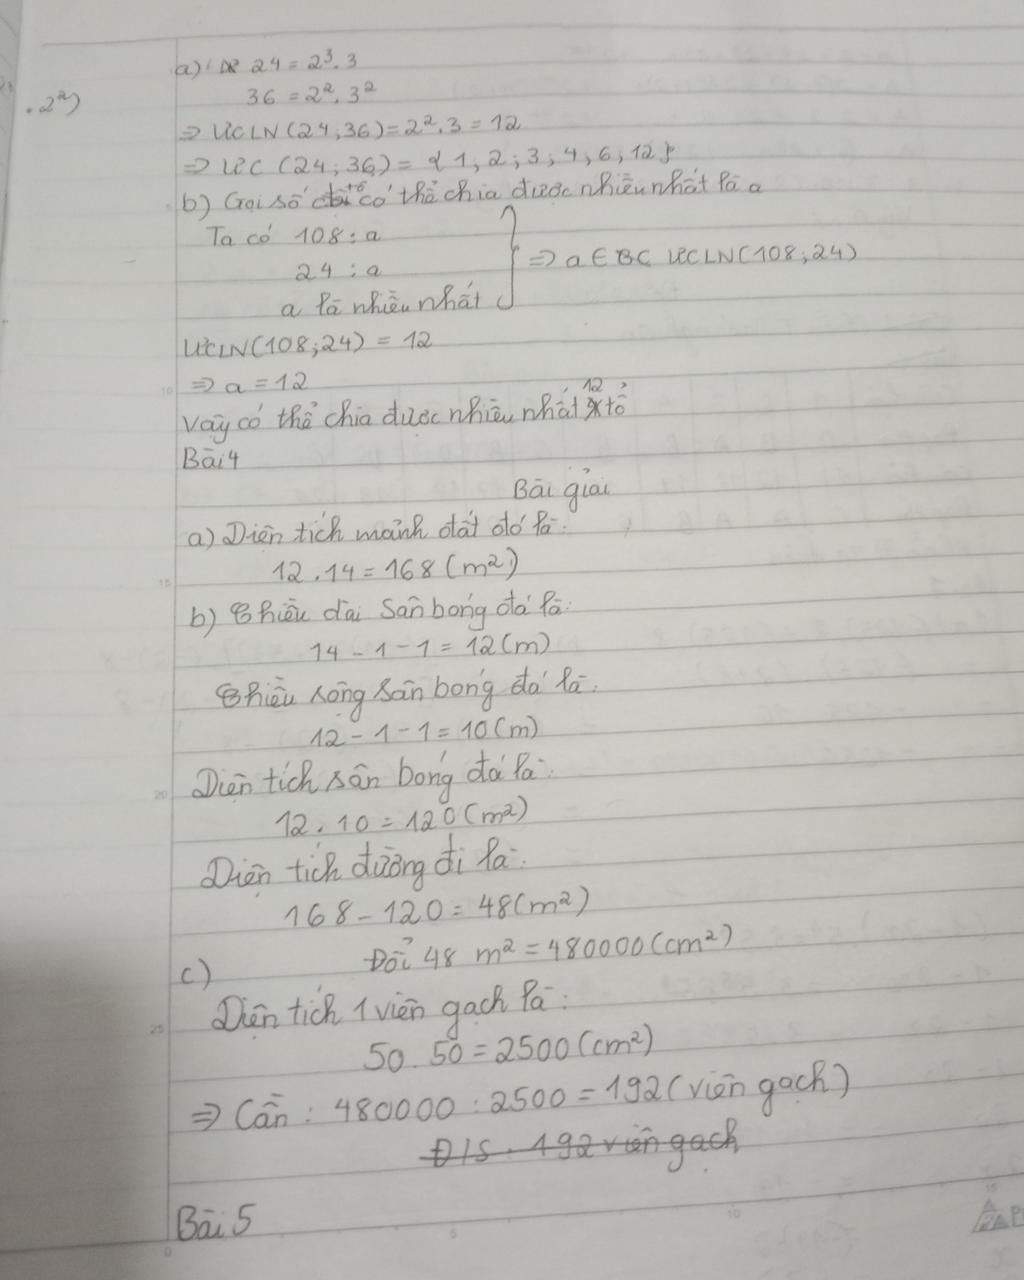 . 2²)
a) 24 = 2³. 3
36 = 2². 3²
⇒ ƯCLN (24; 36) = 2². 3 = 12
⇒ ƯC (24; 36) = {1, 2; 3; 4, 6, 12}
b) Gọi số tổ có thể chia được nhiều nhất là a
Ta có 108 : a
24 : a
a là nhiều nhất
⇒ a ∈ BC ƯCLN (108; 24)
ƯCLN (108; 24) = 12
⇒ a = 12
Vậy có thể chia được nhiều nhất 12 tổ
Bài 4
Bài giải
a) Diện tích mảnh đất đó là:
12 . 14 = 168 (m²)
b) Chiều dài sân bóng đá là:
14 - 1 - 1 = 12 (m)
Chiều rông sân bóng đá là:
12 - 1 - 1 = 10 (m)
Diện tích sân bóng đá là:
12 . 10 = 120 (m²)
Diện tích đường đi là:
168 - 120 = 48 (m²)
c) Đổi 48 m² = 480000 (cm²)
Diện tích 1 viên gạch là:
50 . 50 = 2500 (cm²)
⇒ Cần : 480000 : 2500 = 192 (viên gạch)
Đ/S : 192 viên gạch
Bài 5